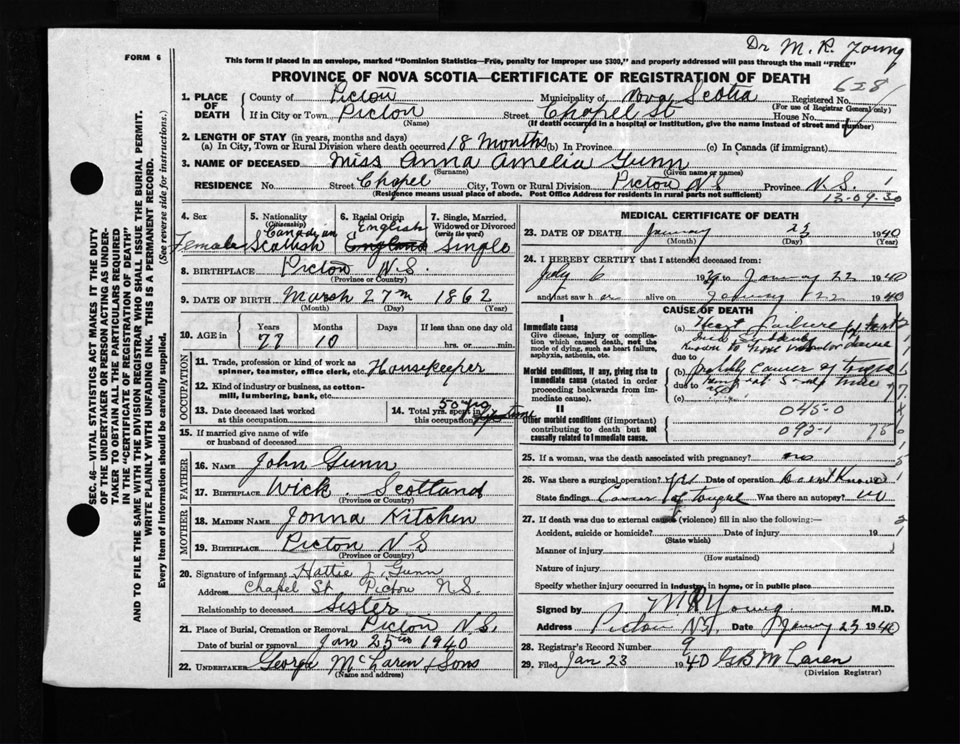 Dr M. R. Young
FORM 6
This form if placed in an envelope, marked "Dominion Statistics—Free, penalty for improper use $300," and properly addressed will pass through the mail "FREE"
PROVINCE OF NOVA SCOTIA—CERTIFICATE OF REGISTRATION OF DEATH
628
1. PLACE OF DEATH
County of Pictou Municipality of Nova Scotia Registered No.
(For use of Registrar General only)
If in City or Town Pictou Street Chapel St House No.
(Name) (If death occurred in a hospital or institution, give the name instead of street and number)
2. LENGTH OF STAY (in years, months and days)
(a) In City, Town or Rural Division where death occurred 18 months (b) In Province (c) In Canada (if immigrant)
3. NAME OF DECEASED Miss Anna Amelia Gunn
(Surname) (Given name or names)
RESIDENCE No. Street Chapel City, Town or Rural Division Pictou N S Province N.S. 1
(Residence means usual place of abode. Post Office Address for residents in rural parts not sufficient)
13-09-30
4. Sex Female
5. Nationality (Citizenship) Canadian Scottish
6. Racial Origin English England
7. Single, Married, Widowed or Divorced (write the word) Single
8. BIRTHPLACE Pictou N.S.
(Province or Country)
9. DATE OF BIRTH March 27th 1862
(Month) (Day) (Year)
10. AGE in Years Months Days If less than one day old
77 10 hrs. or min.
OCCUPATION
11. Trade, profession or kind of work as spinner, teamster, office clerk, etc. Housekeeper
12. Kind of industry or business, as cotton-mill, lumbering, bank, etc.
13. Date deceased last worked at this occupation
14. Total yrs. spent in this occupation 50 yrs
15. If married give name of wife or husband of deceased
FATHER
16. NAME John Gunn
17. BIRTHPLACE Wick Scotland
(Province or Country)
MOTHER
18. MAIDEN NAME Jonna Kitchen
19. BIRTHPLACE Pictou N S
(Province or Country)
20. Signature of informant Hattie J. Gunn
Address Chapel St Pictou NS.
Relationship to deceased Sister
21. Place of Burial, Cremation or Removal Pictou N.S.
Date of burial or removal Jan 25th 1940
22. UNDERTAKER George McLaren & Sons
(Name and address)
MEDICAL CERTIFICATE OF DEATH
23. DATE OF DEATH January 23 1940
(Month) (Day) (Year)
24. I HEREBY CERTIFY that I attended deceased from:
July 6 1939 to January 22 1940
and last saw her alive on January 22 1940
CAUSE OF DEATH
I
Immediate cause
Give disease, injury or complication which caused death, not the mode of dying, such as heart failure, asphyxia, asthenia, etc.
(a) Heart Failure
due to
Morbid conditions, if any, giving rise to immediate cause (stated in order proceeding backwards from immediate).
(b) probably Cancer of tongue
due to
(c)
II
Other morbid conditions (if important) contributing to death but not causally related to immediate cause.
045-0
092-1
25. If a woman, was the death associated with pregnancy? no
26. Was there a surgical operation? yes Date of operation Don't Know
State findings Cancer of Tongue Was there an autopsy? no
27. If death was due to external causes (violence) fill in also the following:—
Accident, suicide or homicide? Date of injury 19
(State which)
Manner of injury
(How sustained)
Nature of injury
Specify whether injury occurred in industry, in home, or in public place
Signed by M R Young M.D.
Address Pictou N.S. Date January 23 1940
28. Registrar's Record Number 9
29. Filed Jan 23 1940 GB McLaren
(Division Registrar)
SEC. 46—VITAL STATISTICS ACT MAKES IT THE DUTY
OF THE UNDERTAKER OR PERSON ACTING AS UNDER-
TAKER TO OBTAIN ALL THE PARTICULARS REQUIRED
IN THE "CERTIFICATE OF REGISTRATION OF DEATH"
AND TO FILE THE SAME WITH THE DIVISION REGISTRAR WHO SHALL ISSUE THE BURIAL PERMIT.
WRITE PLAINLY WITH UNFADING INK. THIS IS A PERMANENT RECORD.
Every item of information should be carefully supplied. (See reverse side for instructions.)